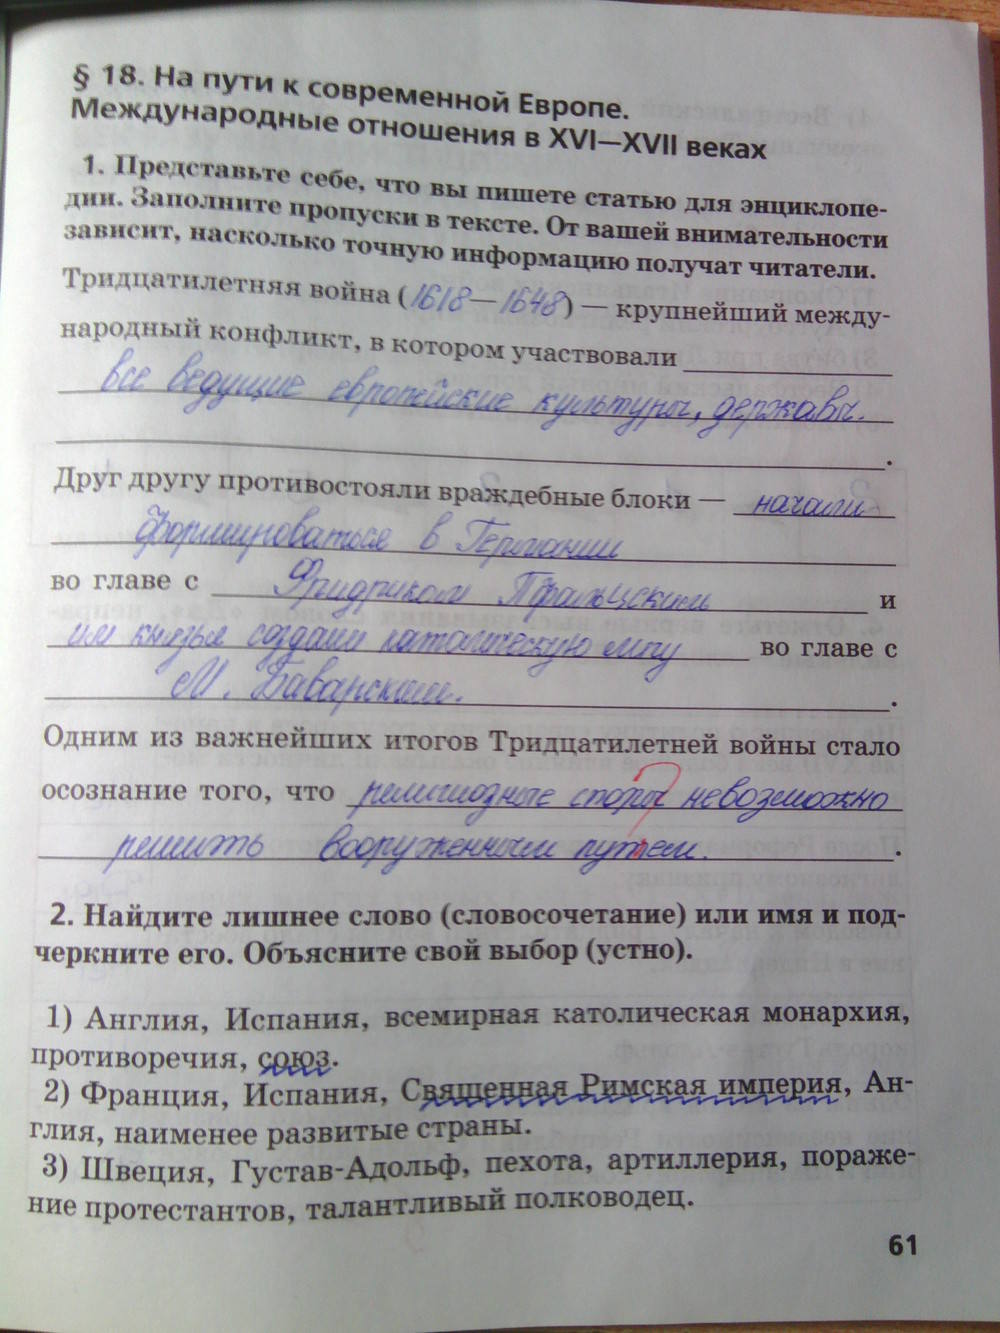 § 18. На пути к современной Европе.
Международные отношения в XVI—XVII веках
1. Представьте себе, что вы пишете статью для энциклопе-
дии. Заполните пропуски в тексте. От вашей внимательности
зависит, насколько точную информацию получат читатели.
Тридцатилетняя война (1618—1648) — крупнейший между-
народный конфликт, в котором участвовали
все ведущие европейские культуры, державы.
.
Друг другу противостояли враждебные блоки — начали
формироваться в Германии
во главе с Фридрихом Пфальцским и
им князья создали католическую лигу во главе с
М. Баварским.
Одним из важнейших итогов Тридцатилетней войны стало
осознание того, что религиозные споры невозможно
решить вооруженным путем.
2. Найдите лишнее слово (словосочетание) или имя и под-
черкните его. Объясните свой выбор (устно).
1) Англия, Испания, всемирная католическая монархия,
противоречия, союз.
2) Франция, Испания, Священная Римская империя, Ан-
глия, наименее развитые страны.
3) Швеция, Густав-Адольф, пехота, артиллерия, пораже-
ние протестантов, талантливый полководец.
61